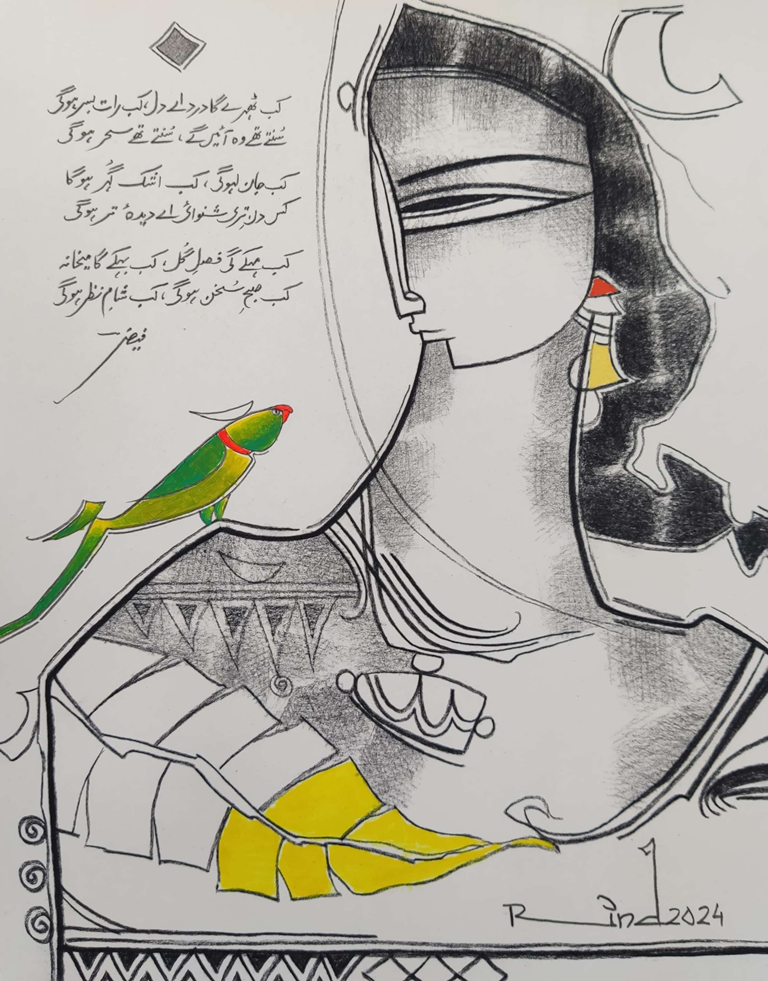 کب ٹھہرے گا درد اے دل، کب رات بسر ہوگی
سُنتے تھے وہ آئیں گے، سُنتے تھے سحر ہوگی
کب جان لہو ہوگی، کب اشک گُہر ہوگا
کس دن تری شنوائی اے دیدۂ تر ہوگی
کب مہکے گی فصلِ گُل، کب بہکے گا میخانہ
کب صبحِ سُخن ہوگی، کب شامِ نظر ہوگی
فیض
Rind 2024